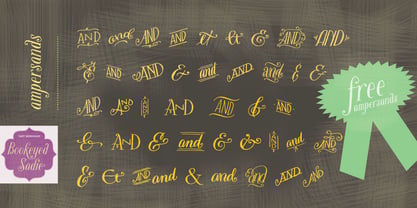 ampersands
AND and AND AND et & & AND AND
& AND AND & and AND and & &
AND AND AND AND AND & AND
& AND & and & & and AND
& & and & and AND AND
TART WORKSHOP
Bookeyed
Sadie
free
ampersands